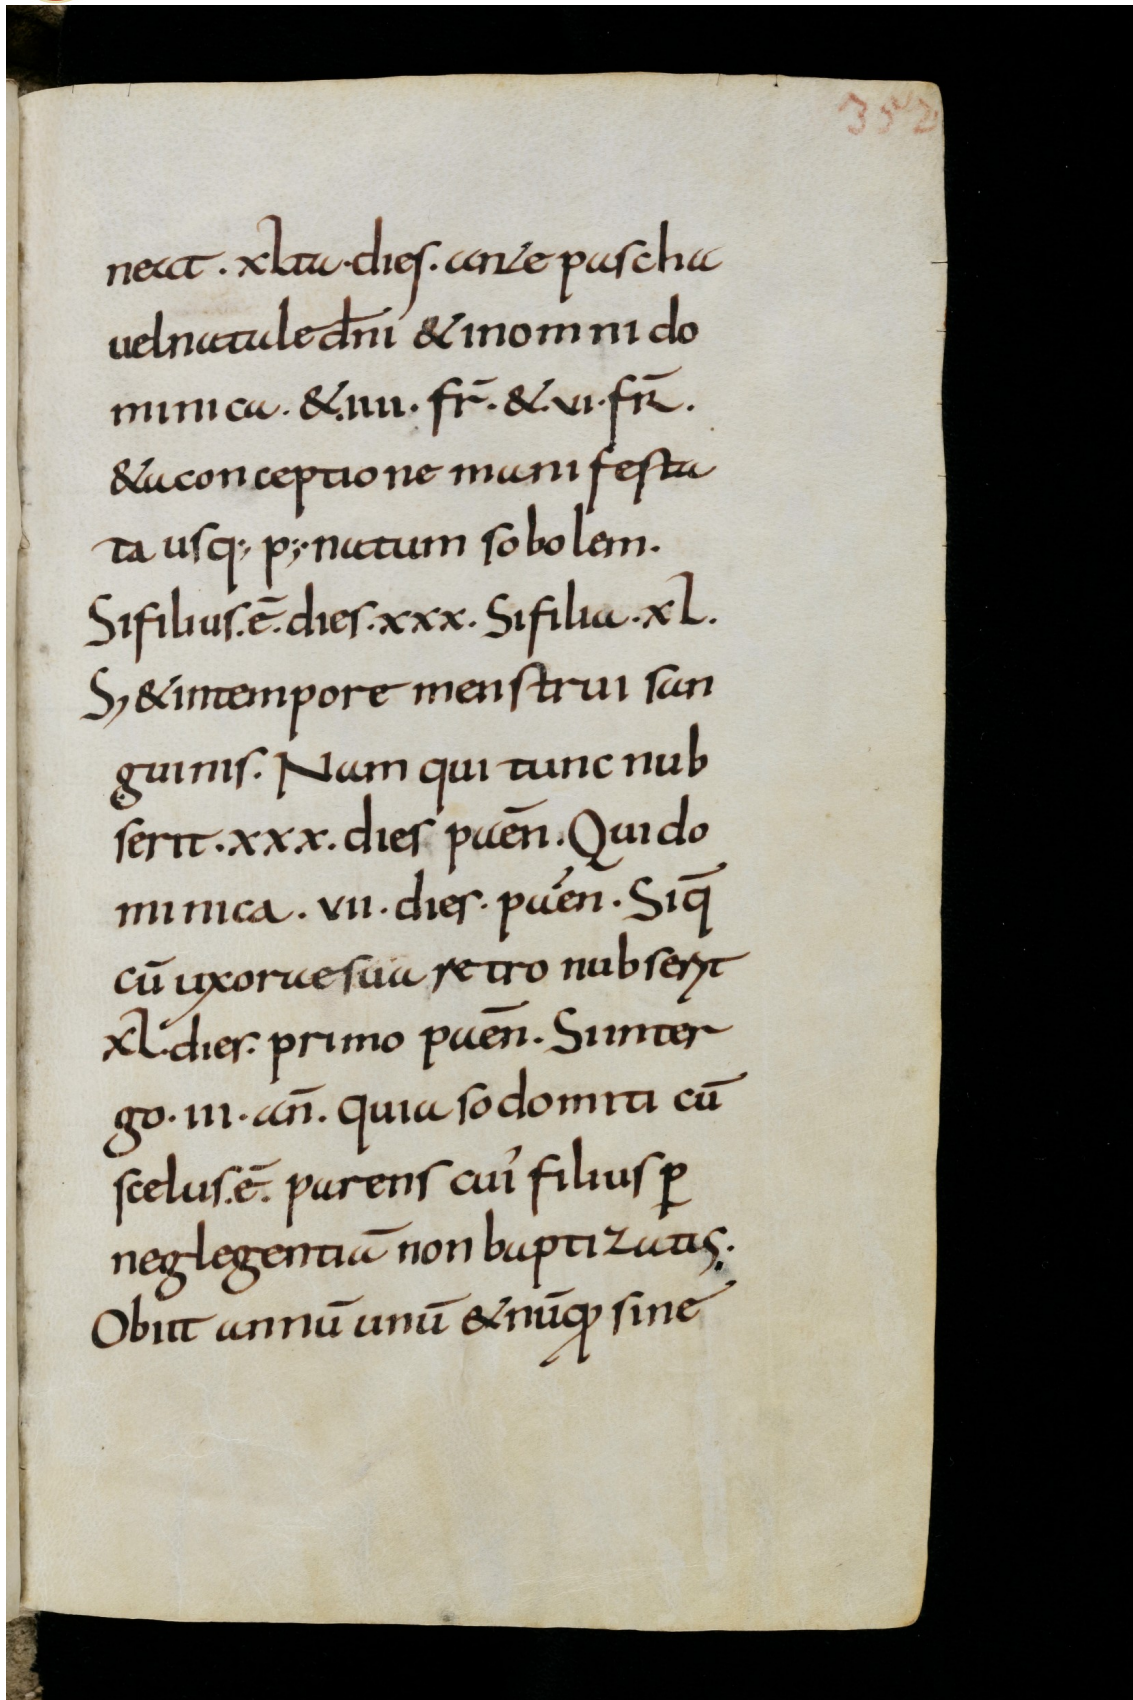 352
neat · xlta · dies · ante pascha
uel natale dn̄i & in omni do
minica · & · iiii · fr̄ · & · vi · fr̄ ·
& a conceptione manifesta
ta usq; p; natum sobolem ·
Si filius · ē · dies · xxx · Si filia · xl ·
S; & in tempore menstrui san
guinis · Nam qui tunc nub
serit · xxx · dies paen̄ · Qui do
minica · vii · dies · pa'en · Siq̄
cū uxorae sua retro nubseryt
xl · dies · primo paen̄ · Si inter
go · iii · an̄ · quia sodomiti cū
scelus · ē · parens cui' filius ꝑ
neglegentiā non baptizatis ·
Obiit annū unū & nūqꝫ sine